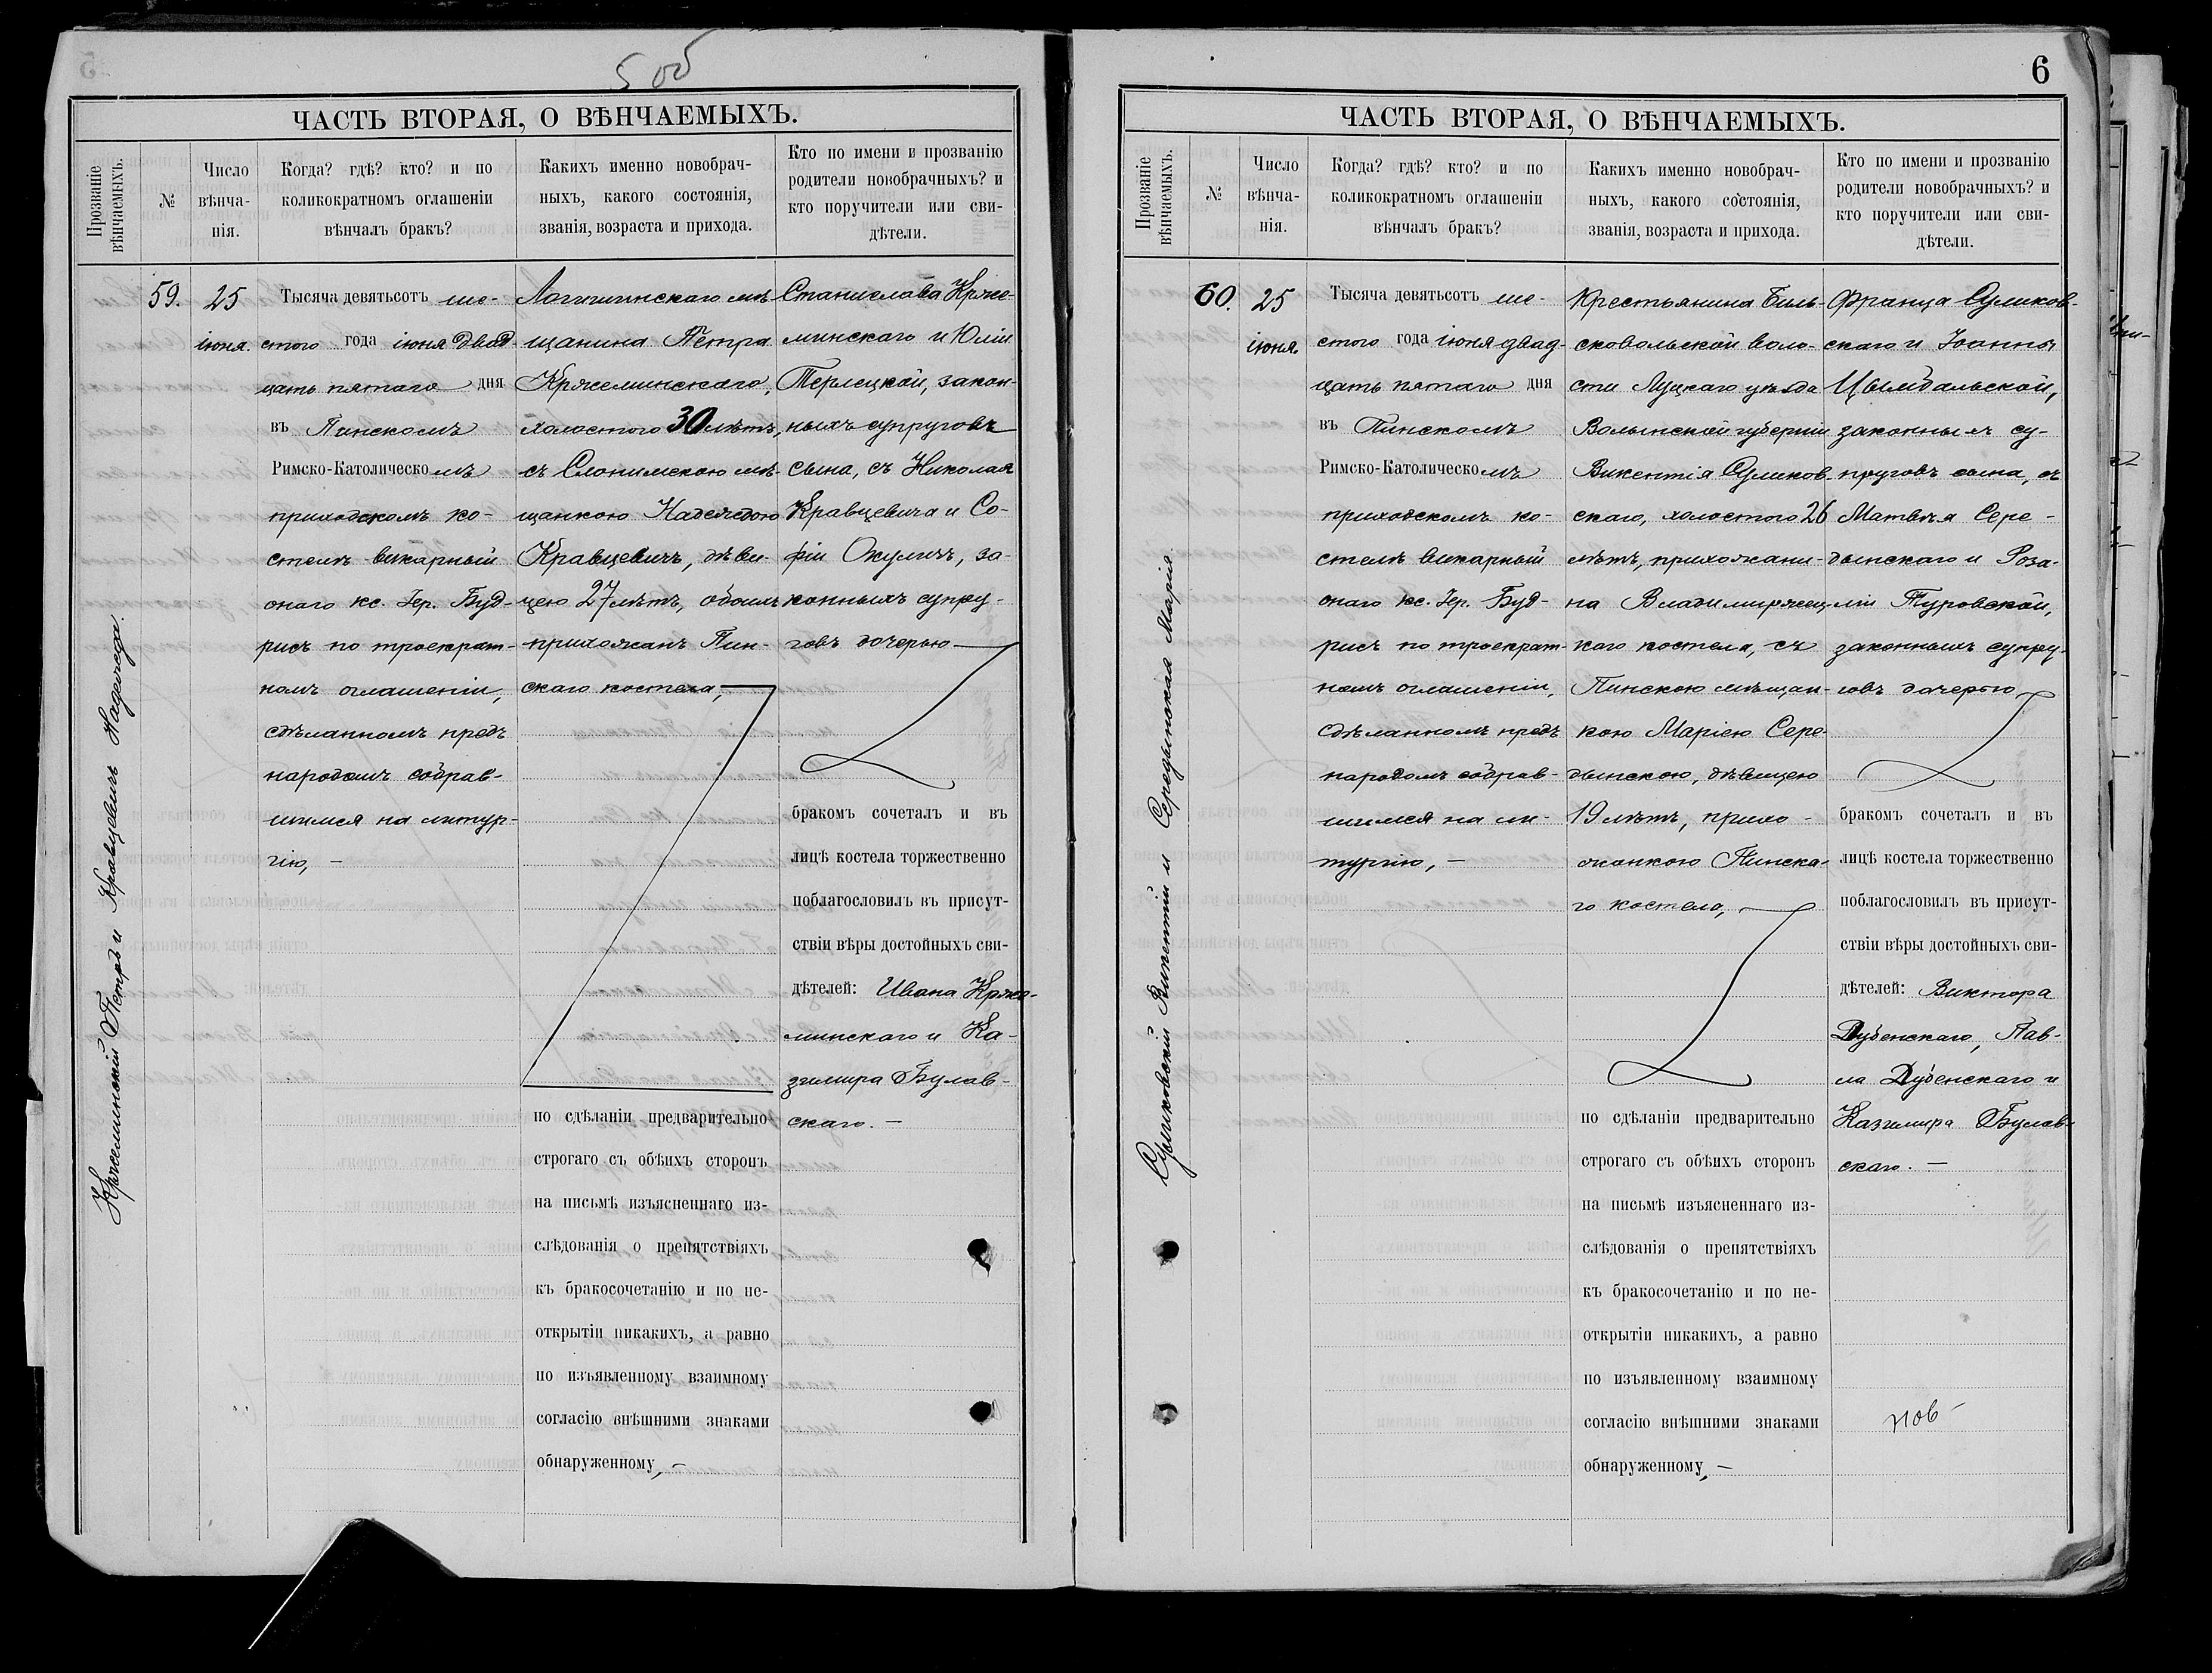 5 об
ЧАСТЬ ВТОРАЯ, О ВѢНЧАЕМЫХЪ.
Прозваніе
вѣнчаемыхъ.
№
Число
вѣнча-
нія.
Когда? гдѣ? кто? и по
коликократномъ оглашеніи
вѣнчалъ бракъ?
Какихъ именно новобрач-
ныхъ, какого состоянія,
званія, возраста и прихода.
Кто по имени и прозванію
родители новобрачныхъ? и
кто поручители или сви-
дѣтели.
Кржеминскій Петръ и Кравцевичъ Надежда.
59.
25
іюня.
Тысяча девятьсотъ ше-
стого года іюня двад-
цать пятаго дня
въ Пинскомъ
Римско-Католическомъ
приходскомъ ко-
стелѣ викарный
онаго кс. Іер. Буд-
рисъ по троекрат-
номъ оглашеніи,
сдѣланномъ предъ
народомъ собрав-
шимся на литур-
гію, –
Логишинскаго мѣ-
щанина Петра
Кржеминскаго,
холостого 30 лѣтъ,
съ Слонимскою мѣ-
щанкою Надеждою
Кравцевичъ, дѣви-
цею 27 лѣтъ, обоихъ
прихожанъ Пин-
скаго костела,
по сдѣланіи предварительно
строгаго съ обѣихъ сторонъ
на письмѣ изъясненнаго из-
слѣдованія о препятствіяхъ
къ бракосочетанію и по не-
открытіи никакихъ, а равно
по изъявленному взаимному
согласію внѣшними знаками
обнаруженному, –
Станислава Крже-
минскаго и Юліи
Терлецкой, закон-
ныхъ супруговъ
сына, съ Николая
Кравцевича и Со-
фіи Окуличъ, за-
конныхъ супру-
говъ дочерью
бракомъ сочеталъ и въ
лицѣ костела торжественно
поблагословилъ въ присут-
ствіи вѣры достойныхъ сви-
дѣтелей: Ивана Крже-
минскаго и Ка-
зимира Булав-
скаго. –
6
ЧАСТЬ ВТОРАЯ, О ВѢНЧАЕМЫХЪ.
Прозваніе
вѣнчаемыхъ.
№
Число
вѣнча-
нія.
Когда? гдѣ? кто? и по
коликократномъ оглашеніи
вѣнчалъ бракъ?
Какихъ именно новобрач-
ныхъ, какого состоянія,
званія, возраста и прихода.
Кто по имени и прозванію
родители новобрачныхъ? и
кто поручители или сви-
дѣтели.
Суликовскій Викентій и Середынская Марія.
60.
25
іюня.
Тысяча девятьсотъ ше-
стого года іюня двад-
цать пятаго дня
въ Пинскомъ
Римско-Католическомъ
приходскомъ ко-
стелѣ викарный
онаго кс. Іер. Буд-
рисъ по троекрат-
номъ оглашеніи,
сдѣланномъ предъ
народомъ собрав-
шимся на ли-
тургію, –
Крестьянина Биль-
сковольской воло-
сти Луцкаго уѣзда
Волынской губерніи
Викентія Суликов-
скаго, холостого 26
лѣтъ, прихожани-
на Владимирец-
каго костела, съ
Пинскою мѣщан-
кою Маріею Сере-
дынскою, дѣвицею
19 лѣтъ, прихо-
жанкою Пинска-
го костела,
по сдѣланіи предварительно
строгаго съ обѣихъ сторонъ
на письмѣ изъясненнаго из-
слѣдованія о препятствіяхъ
къ бракосочетанію и по не-
открытіи никакихъ, а равно
по изъявленному взаимному
согласію внѣшними знаками
обнаруженному, –
Франца Суликов-
скаго и Іоанны
Цымдальской,
законныхъ су-
пруговъ сына, съ
Матвѣя Сере-
дынскаго и Роза-
ліи Туровской,
законныхъ супру-
говъ дочерью
бракомъ сочеталъ и въ
лицѣ костела торжественно
поблагословилъ въ присут-
ствіи вѣры достойныхъ сви-
дѣтелей: Виктора
Дубенскаго, Пав-
ла Дубенскаго и
Казимира Булав-
скаго. –